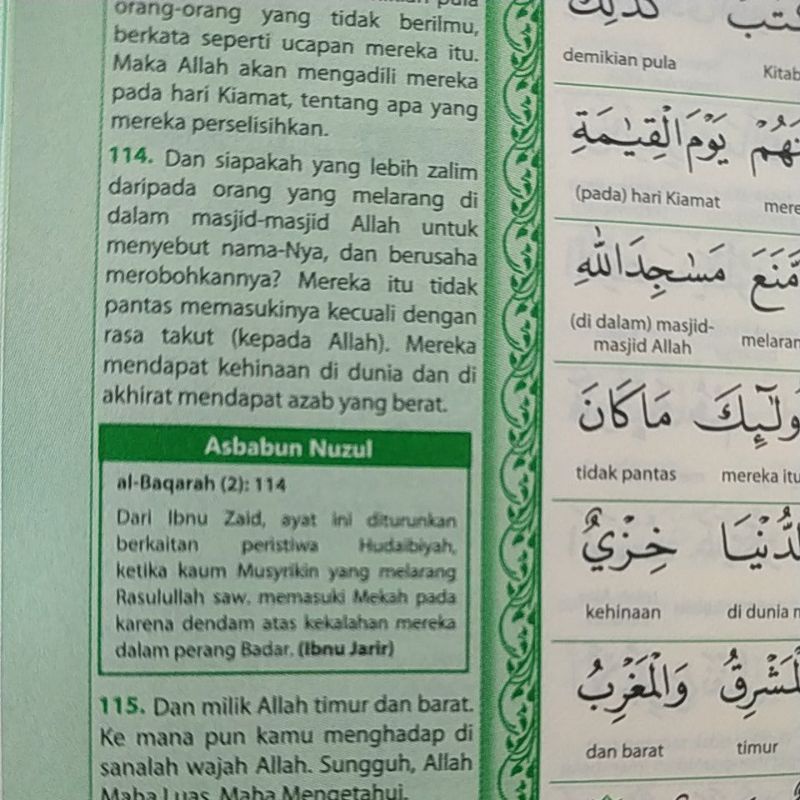 orang-orang yang tidak berilmu,
berkata seperti ucapan mereka itu.
Maka Allah akan mengadili mereka
pada hari Kiamat, tentang apa yang
mereka perselisihkan.
114. Dan siapakah yang lebih zalim
daripada orang yang melarang di
dalam masjid-masjid Allah untuk
menyebut nama-Nya, dan berusaha
merobohkannya? Mereka itu tidak
pantas memasukinya kecuali dengan
rasa takut (kepada Allah). Mereka
mendapat kehinaan di dunia dan di
akhirat mendapat azab yang berat.
Asbabun Nuzul
al-Baqarah (2): 114
Dari Ibnu Zaid, ayat ini diturunkan
berkaitan peristiwa Hudaibiyah,
ketika kaum Musyrikin yang melarang
Rasulullah saw. memasuki Mekah pada
karena dendam atas kekalahan mereka
dalam perang Badar. (Ibnu Jarir)
115. Dan milik Allah timur dan barat.
Ke mana pun kamu menghadap di
sanalah wajah Allah. Sungguh, Allah
Maha Luas, Maha Mengetahui.
كَذٰلِكَ
demikian pula Kitab
يَوْمَ الْقِيٰمَةِ
(pada) hari Kiamat
مَّنَعَ مَسٰجِدَ اللّٰهِ
(di dalam) masjid-
masjid Allah
مَا كَانَ
tidak pantas mereka itu
خِزْيٌ
kehinaan di dunia
وَالْمَغْرِبُ
dan barat timur